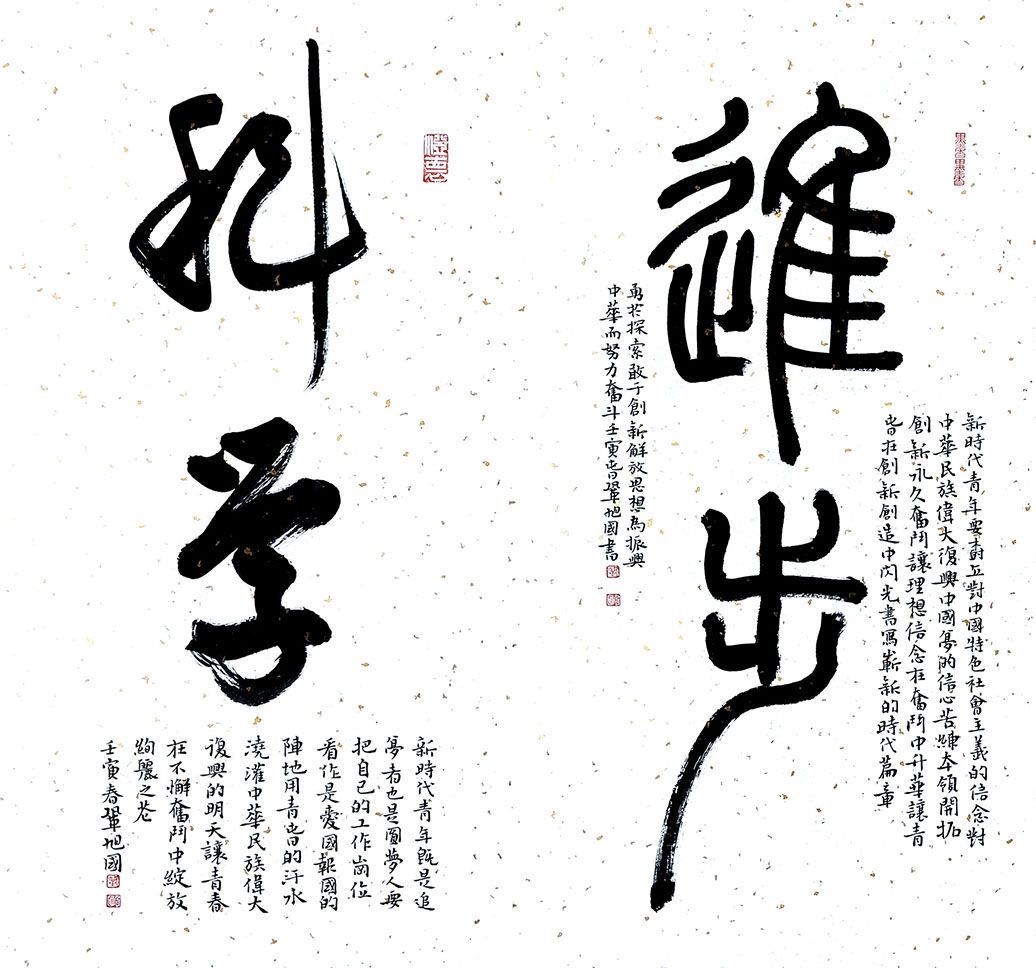 進步
新時代青年要樹立對中國特色社會主義的信念對
中華民族偉大復興中國夢的信心苦練本領開拓
創新永久奮鬥讓理想信念在奮鬥中升華讓青
春在創新創造中閃光書寫嶄新的時代篇章
勇於探索敢于創新解放思想為振興
中華而努力奮斗壬寅春鞏旭國書
科学
新時代青年既是追
夢者也是圓夢人要
把自己的工作崗位
看作是愛國報國的
陣地用青春的汗水
澆灌中華民族偉大
復興的明天讓青春
在不懈奮鬥中綻放
絢麗之花
壬寅春鞏旭國